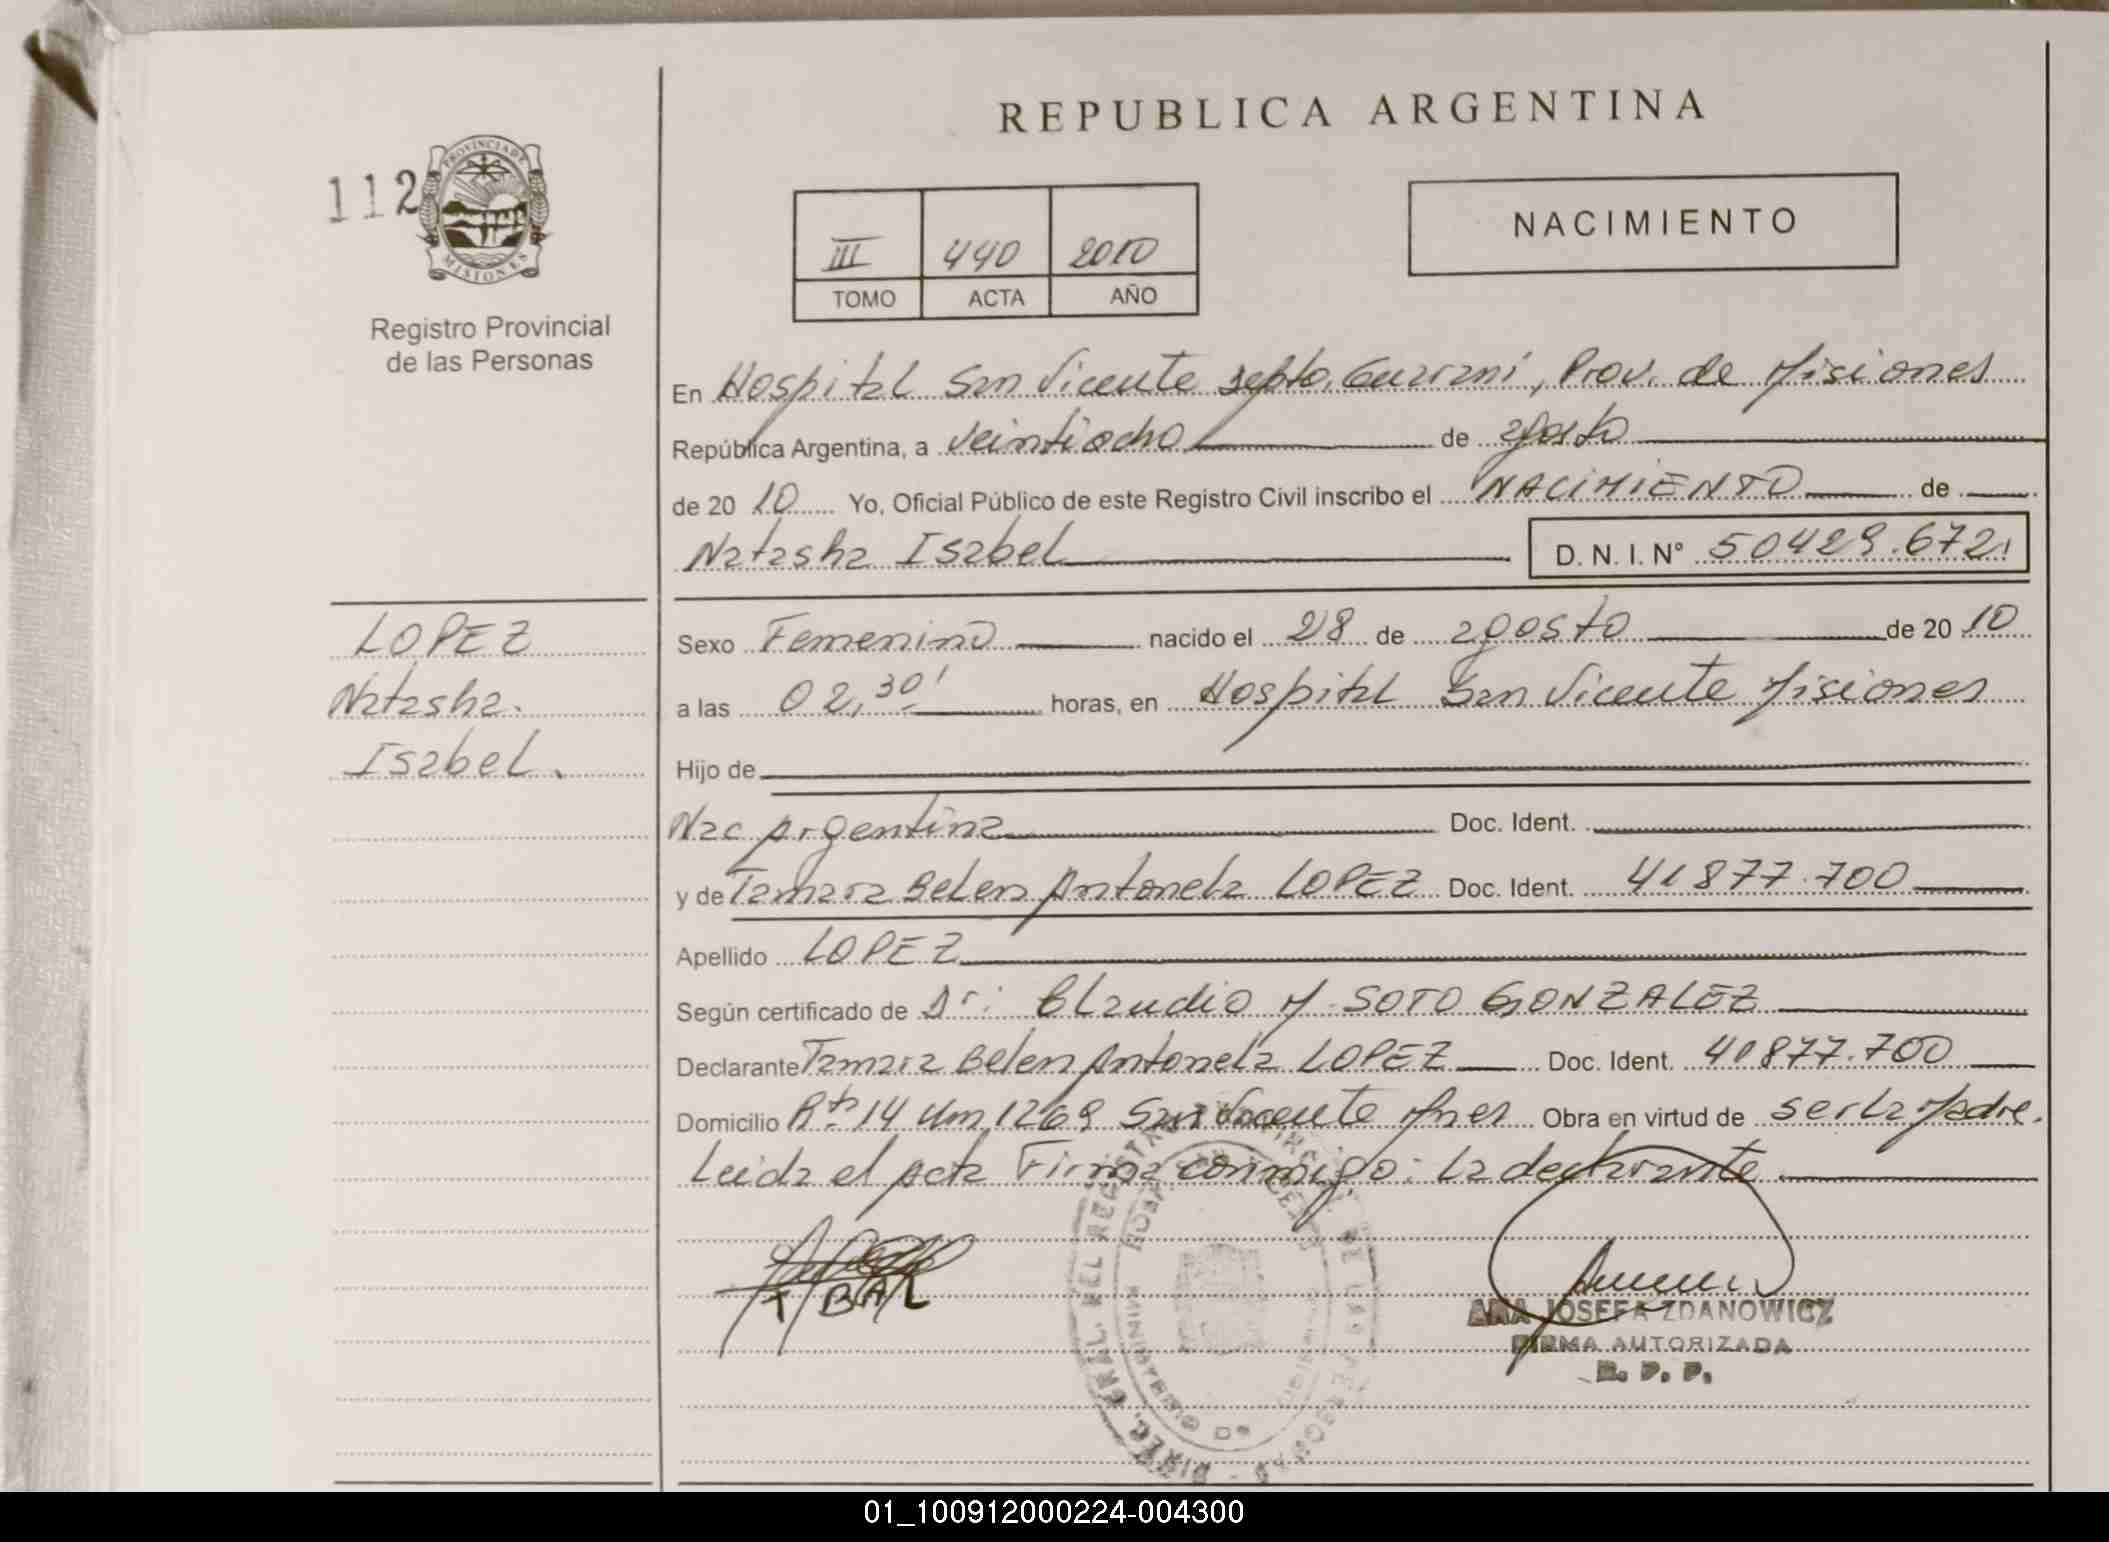 REPUBLICA ARGENTINA
112
PROVINCIA DE
MISIONES
Registro Provincial
de las Personas
III 440 2010
TOMO ACTA AÑO
NACIMIENTO
En Hospital San Vicente Depto. Guaraní, Prov. de Misiones
República Argentina, a Veintiocho de agosto
de 2010 Yo, Oficial Público de este Registro Civil inscribo el NACIMIENTO de
Natasha Isabel D. N. I. N° 50429.672
LOPEZ
Natasha.
Isabel.
Sexo Femenino nacido el 28 de agosto de 2010
a las 02,30' horas, en Hospital San Vicente Misiones
Hijo de
Nac Argentina Doc. Ident.
y de Tamara Belen Antonela LOPEZ Doc. Ident. 41877.700
Apellido LOPEZ
Según certificado de Dr: Claudio M. SOTO GONZALEZ
Declarante Tamara Belen Antonela LOPEZ Doc. Ident. 41877.700
Domicilio Rta 14 Km 1269 San Vicente Mnes Obra en virtud de ser la Madre.
Leida el Acta Firma conmigo: La declarante
T BAL
ANA JOSEFA ZDANOWICZ
FIRMA AUTORIZADA
R. P. P.
DIREC. GRAL. DEL REGISTRO DE LAS PERSONAS
01_100912000224-004300